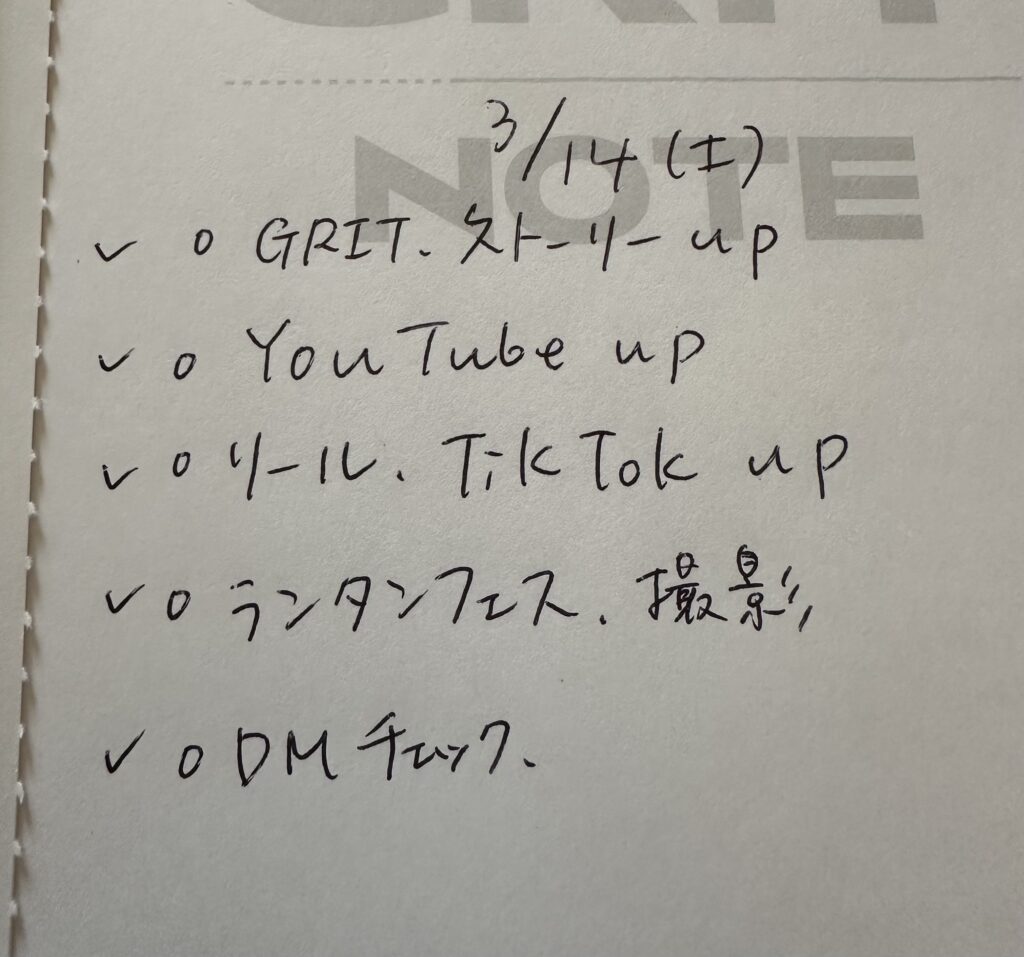 GRIT
NOTE
3/14(土)
✓ o GRIT. ストーリー up
✓ o YouTube up
✓ o リール. TikTok up
✓ o ランタンフェス. 撮影
✓ o DMチェック.